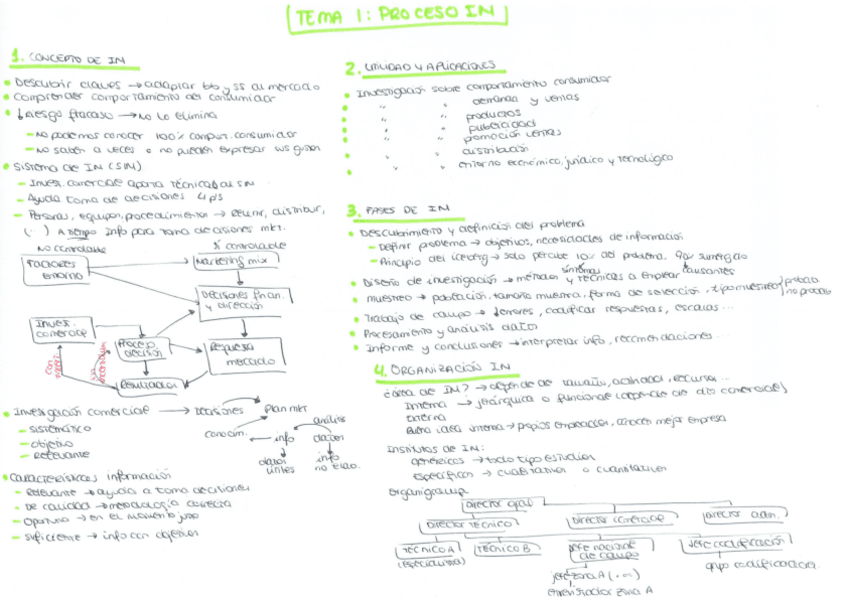 TEMA 1: PROCESO IN
1. CONCEPTO DE IN
Descubrir claves → adaptar bb y ss al mercado
Comprender comportamiento del consumidor
↓ Riesgo fracaso → No lo elimina
- No podemos conocer 100% comport. consumidor
- No saben a veces o no pueden expresar sus
Sistema de IN (SIM)
- Inves. comerciale aporta técnicas al SIN
- Ayuda toma de decisiones 4 p's
- Personas, equipos, procedimientos → Reunir, distribuir,
(...) A tiempo info para toma decisiones mkt.
No controlable
Sí controlable
Factores entorno
Marketing mix
Decisiones finan. y dirección
Inves. comerciale
Proceso decisión
Respuesta mercado
Resultados
Investigación comerciale → Decisiones → Plan mkt
- sistemático
- objetivo
- Relevante
conocim. ← info ← datos
análisis
datos útiles
info no elab.
Características información
- Relevante → ayuda a toma decisiones
- De calidad → metodología correcta
- Oportuna → en el momento justo
- Suficiente → info con objetivos
2. UTILIDAD Y APLICACIONES
Investigación sobre comportamiento consumidor
" " demanda y ventas
" " productos
" " publicidad
" " promoción ventas
distribución
" " entorno económico, jurídico y tecnológico
3. FASES DE IN
Descubrimiento y definición del problema
- Definir problema → objetivos, necesidades de información
- Principio del iceberg → solo percibe 10% del problema. 90% sumergido
síntomas
causantes
Diseño de investigación → métodos y técnicas a emplear
muestreo → población, tamaño muestra, forma de selección, tipo muestreo
probab.
no probab.
Trabajo de campo → ↓ errores, codificar respuestas, escalas...
Procesamiento y análisis datos
Informe y conclusiones → interpretar info, recomendaciones.
4. ORGANIZACIÓN IN
¿área de IN? → depende de tamaño, actividad, recursos...
Interna → jerárquica o funcionale (depende de dto comerciale)
Externa
Buena idea interna → propios empleados, conocen mejor empresa
Institutos de IN:
genéricos → todo tipo estudios
específicos → cualitativos o cuantitativos
Organigrama
Director gral
Director técnico
Director comerciale
Director adm.
TÉCNICO A (especialista)
TÉCNICO B
Jefe nacional de campo
Jefe codificación
jefe zona A (...)
grupo codificadores
entrevistador zona A